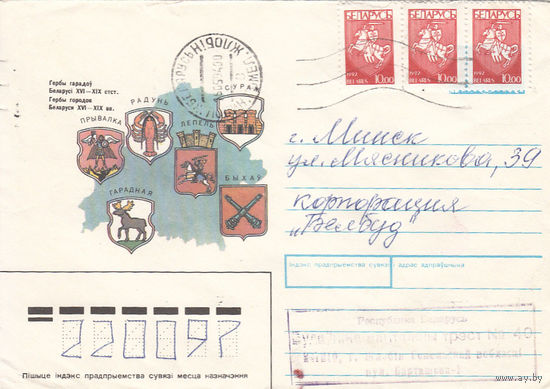 БЕЛАРУСЬ БЕЛАРУСЬ БЕЛАРУСЬ
1992 10.00 1992 10.00 1992 10.00
BELARUS BELARUS BELARUS
Гербы гарадоў
Беларусі XVI—XIX стст.
Гербы городов
Беларуси XVI—XIX вв.
ПРЫВАЛКА
РАДУНЬ
ЛЕПЕЛЬ
СУРАЖ
ГАРАДНАЯ
БЫХАЎ
г. Минск
ул. Мясникова, 39
корпорация
"Белбуд"
Індэкс прадпрыемства сувязі
адрас адпраўшчыка
Рэспубліка Беларусь
трэст № 40
220097
Пішыце індэкс прадпрыемства сувязі месца назначэння
ay.by